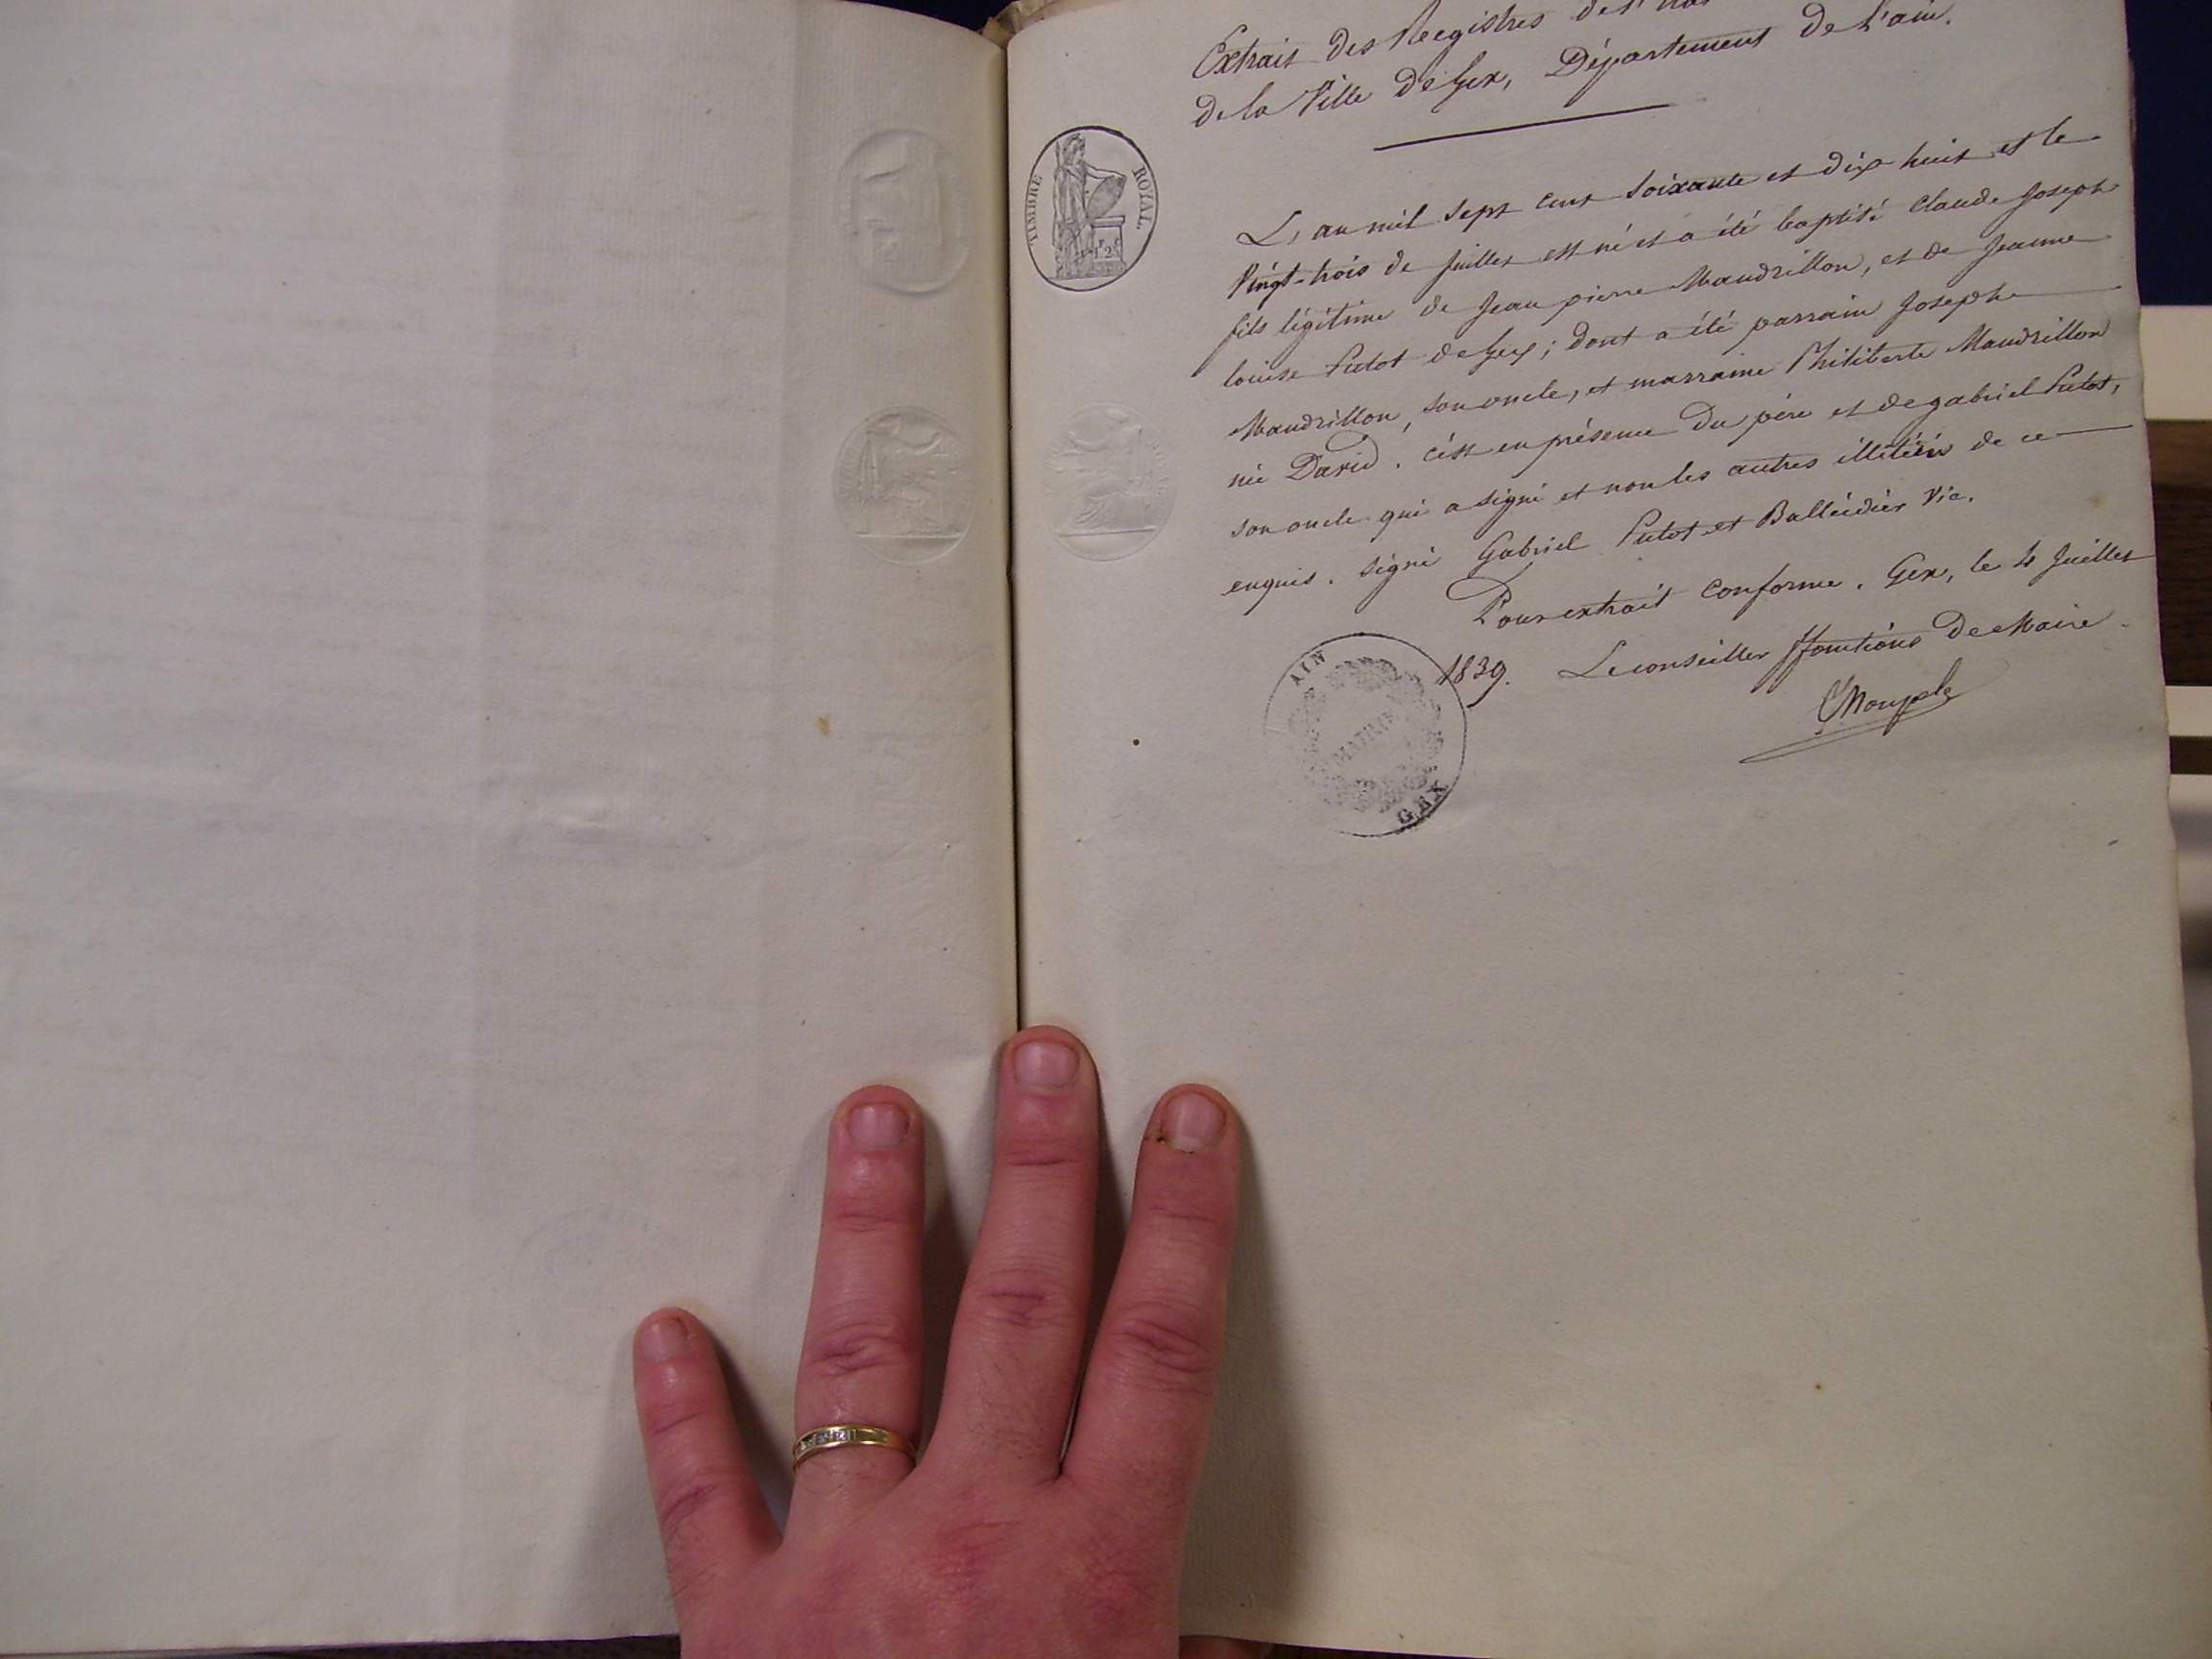 Extrait des Registres de l'
de la Ville de Gex, Département de l'ain.
TIMBRE ROYAL.
L'an mil sept cent soixante et dix huit et le
Vingt-trois de Juillet est né et a été baptisé Claude Joseph
fils légitime de Jean pierre Maudrillon, et de Jeanne
louise Putot de Gex; dont a été parrain Joseph
Maudrillon, son oncle, et marraine Philiberte Maudrillon
née David. c'est en présence du père et de gabriel Putot,
son oncle qui a signé et non les autres illitérés de ce
enquis. signé Gabriel Putot et Balleidier Vic.
Pour extrait conforme. Gex, le 4 Juillet
1839. Le conseiller ff fonctions de Maire.
AIN
MAIRIE
GEX